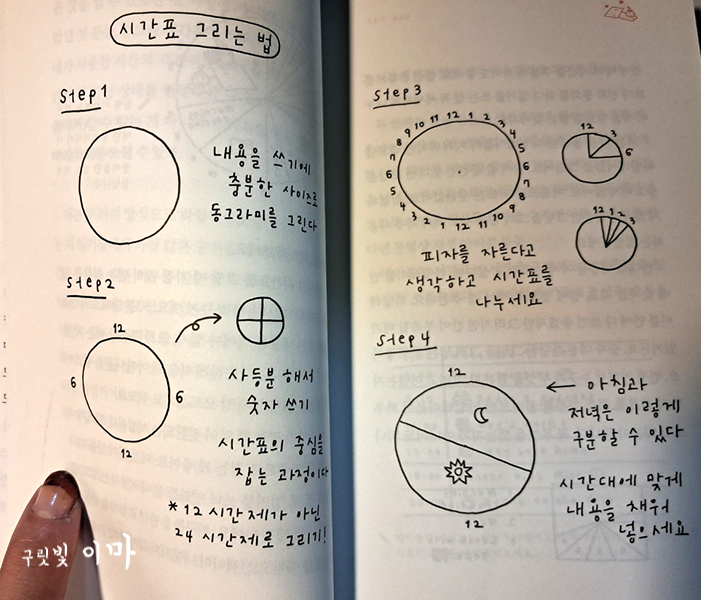 시간표 그리는 법
Step1
내용을 쓰기에
충분한 사이즈로
동그라미를 그린다
Step2
12
6 6
12
사등분 해서
숫자 쓰기
시간표의 중심을
잡는 과정이다
*12시간제가 아닌
24시간제로 그리기!
구릿빛 이마
Step3
8 9 10 11 12 1 2 3 4
7 5
6 6
5 7
4 3 2 1 12 11 10 9 8
12 3
6
12 1 2
피자를 자른다고
생각하고 시간표를
나누세요
Step4
12
12
← 아침과
저녁은 이렇게
구분할 수 있다
시간대에 맞게
내용을 채워
넣으세요